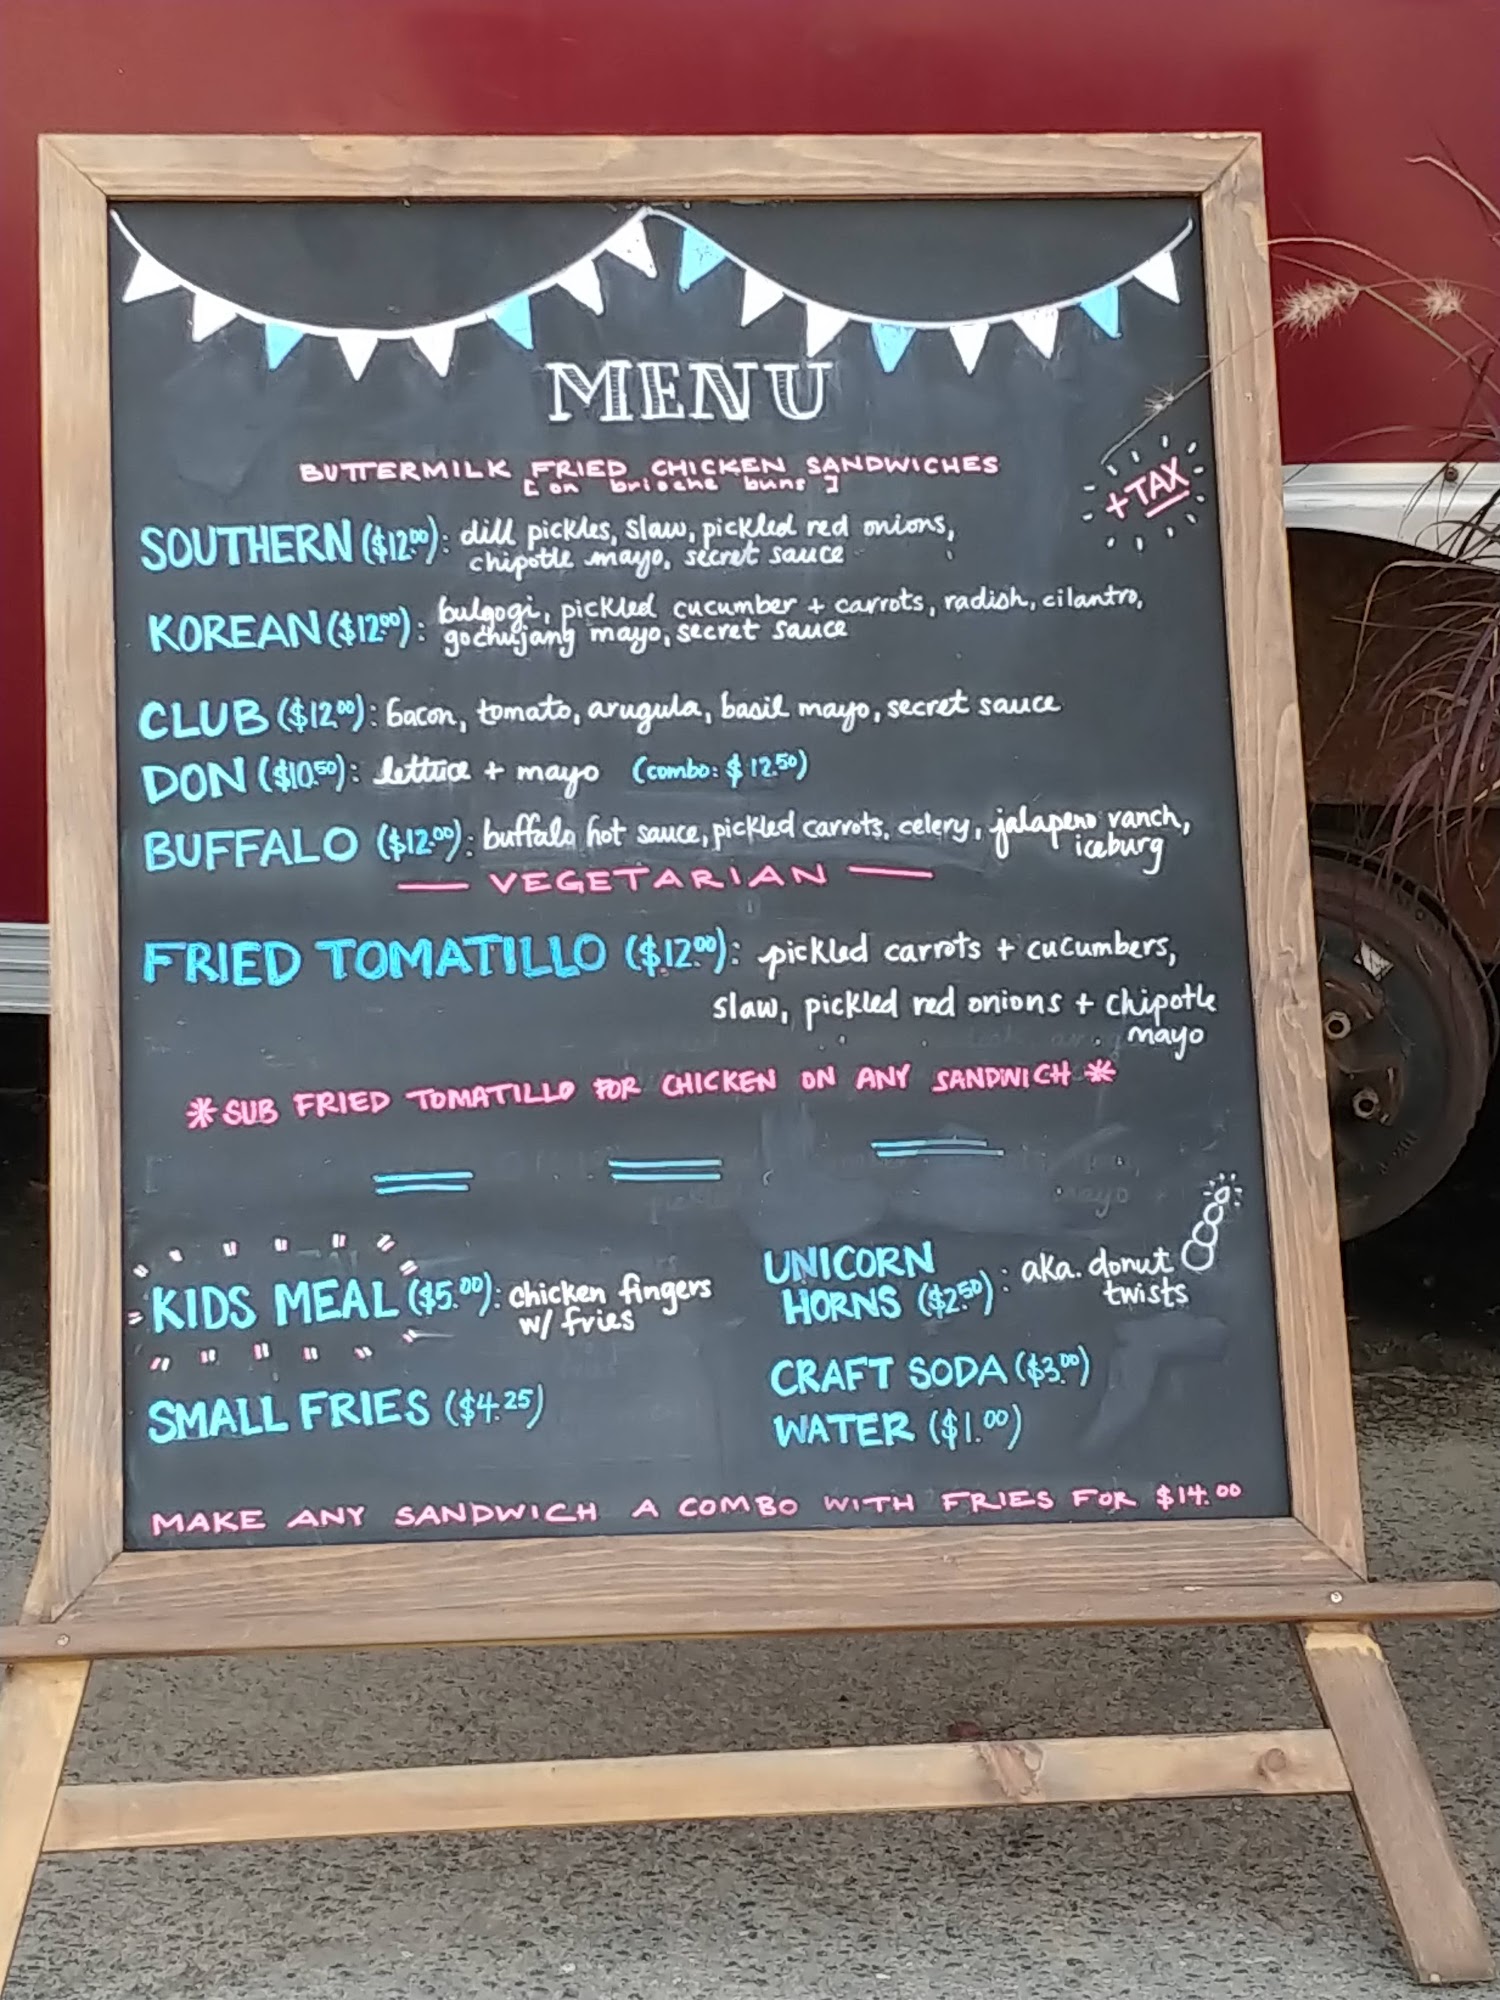 MENU
BUTTERMILK FRIED CHICKEN SANDWICHES
[on brioche buns]
+TAX
SOUTHERN ($12.00): dill pickles, slaw, pickled red onions,
chipotle mayo, secret sauce
KOREAN ($12.00): bulgogi, pickled cucumber + carrots, radish, cilantro,
gochujang mayo, secret sauce
CLUB ($12.00): bacon, tomato, arugula, basil mayo, secret sauce
DON ($10.50): lettuce + mayo (combo: $12.50)
BUFFALO ($12.00): buffalo hot sauce, pickled carrots, celery, jalapeno ranch,
iceburg
VEGETARIAN
FRIED TOMATILLO ($12.00): pickled carrots + cucumbers,
slaw, pickled red onions + chipotle
mayo
*SUB FRIED TOMATILLO FOR CHICKEN ON ANY SANDWICH*
KIDS MEAL ($5.00): chicken fingers
w/ fries
SMALL FRIES ($4.25)
UNICORN
HORNS ($2.50): aka. donut
twists
CRAFT SODA ($3.00)
WATER ($1.00)
MAKE ANY SANDWICH A COMBO WITH FRIES FOR $14.00